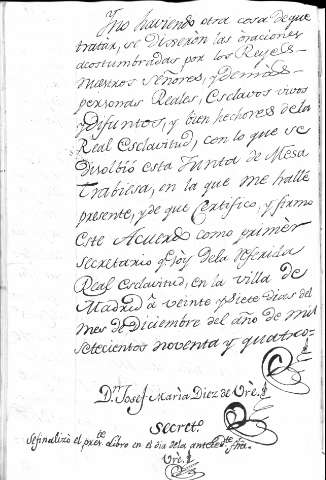 Y no haviendo otra cosa de que
tratar, se dixeron las oraciones
acostumbradas por los Reyes
nuestros Señores, y demás
personas Reales, Esclavos vivos
y difuntos, y bien hechores de la
Real Esclavitud, con lo que se
disolbió esta Junta de Mesa
Trabiesa, en la que me hallé
presente, y de que Certifico, y firmo
este Acuerdo como primer
Secretario qᵉ soy de la referida
Real Esclavitud, en la villa de
Madrid à veinte y siete dias del
mes de Diciembre del año de mil
setecientos noventa y quatro.
Dⁿ Josef María Diez de Ure.
Secretº
Se finalizó el presᵗᵉ libro en el dia de la antecedᵗᵉ fhâ.
Ure.